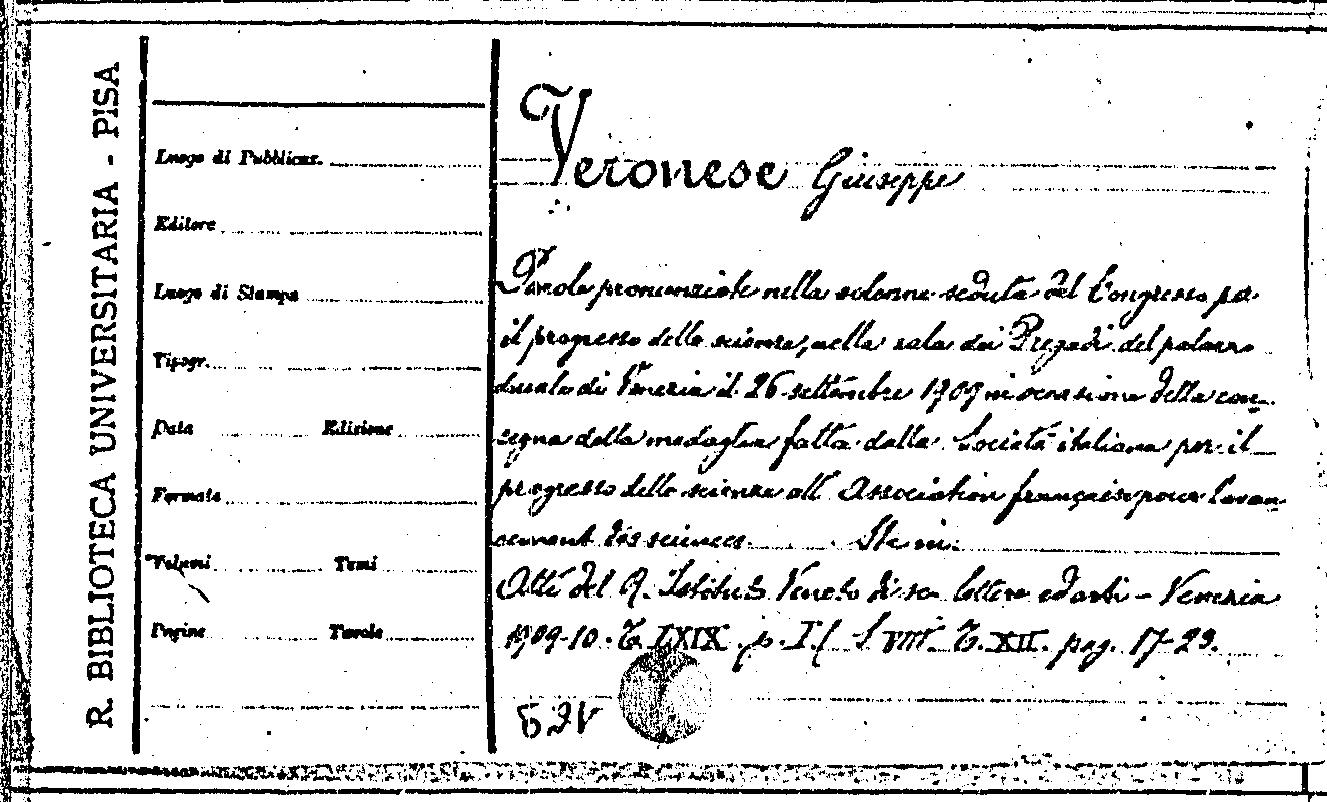 R. BIBLIOTECA UNIVERSITARIA - PISA
Luogo di Pubblicaz.
Editore
Luogo di Stampa
Tipogr.
Data Edizione
Formato
Volumi Tomi
Pagine Tavole
Veronese Giuseppe
Parole pronunziate nella solenne seduta del Congresso per
il progresso delle scienze, nella sala dei Pregadi del palazzo
ducale di Venezia il 26 settembre 1909 in occasione della con-
segna della medaglia fatta dalla Società italiana per il
progresso delle scienze all' Association française pour l'avan-
cement des sciences.
Atti del R. Istituto Veneto di sc. lettere ed arti - Venezia
1909-10. T. LXIX p. I S. VIII. T. XII. pag. 17-23.